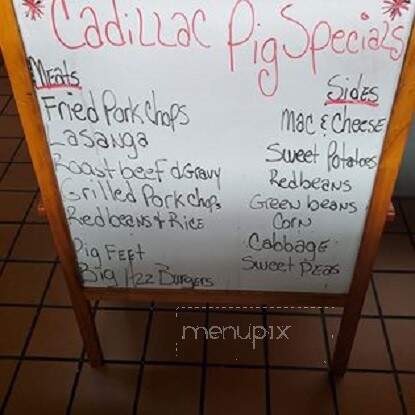 Cadillac Pig Specials
Meats
Fried Pork Chops
Lasanga
Roast beef & Gravy
Grilled Pork chops
Red beans & Rice
Pig Feet
Big Hzz Burgers
Sides
Mac & Cheese
Sweet Potatoes
Red beans
Green beans
Corn
Cabbage
Sweet Peas
menupix